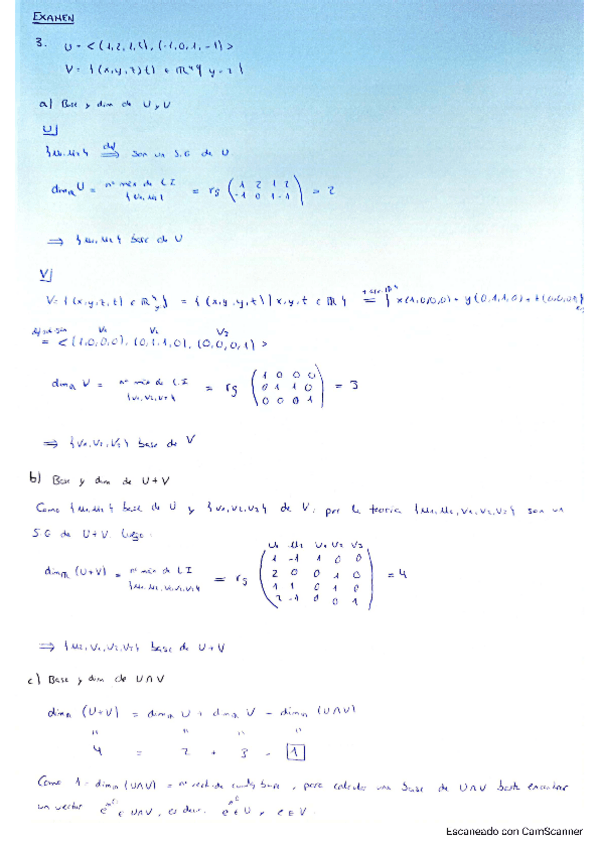 EXAMEN
3. U = <(1,2,1,2), (-1,0,1,-1)>
V = {(x,y,z,t) ∈ ℝ⁴ | y=z}
a) Base y dim de U y V
U|
{u₁,u₂} ⟹ son un S.G de U
dim U = nº máx de L.I {u₁,u₂} = rg (1 2 1 2 / -1 0 1 -1) = 2
⟹ {u₁,u₂} base de U
V|
V = {(x,y,z,t) ∈ ℝ⁴ } = {(x,y,y,t) | x,y,t ∈ ℝ} = { x(1,0,0,0) + y(0,1,1,0) + t(0,0,0,1)
= <(1,0,0,0), (0,1,1,0), (0,0,0,1)>
dim V = nº máx de L.I = rg (1 0 0 0 / 0 1 1 0 / 0 0 0 1) = 3
⟹ {v₁,v₂,v₃} base de V
b) Base y dim de U+V
Como {u₁,u₂} base de U y {v₁,v₂,v₃} de V, por la teoría {u₁,u₂,v₁,v₂,v₃} son un
S.G de U+V. Luego:
u₁ u₂ v₁ v₂ v₃
dim (U+V) = nº máx de L.I = rg (1 -1 1 0 0 / 2 0 0 1 0 / 1 1 0 1 0 / 2 -1 0 0 1) = 4
⟹ {u₂,v₁,v₂,v₃} base de U+V
c) Base y dim de U∩V
dim (U+V) = dim U + dim V - dim (U∩V)
4 = 2 + 3 - 1
Como 1 = dim (U∩V) = nº , para calcular una base de U∩V basta encontrar
un vector e ∈ U∩V, es decir, e ∈ U y e ∈ V.
Escaneado con CamScanner